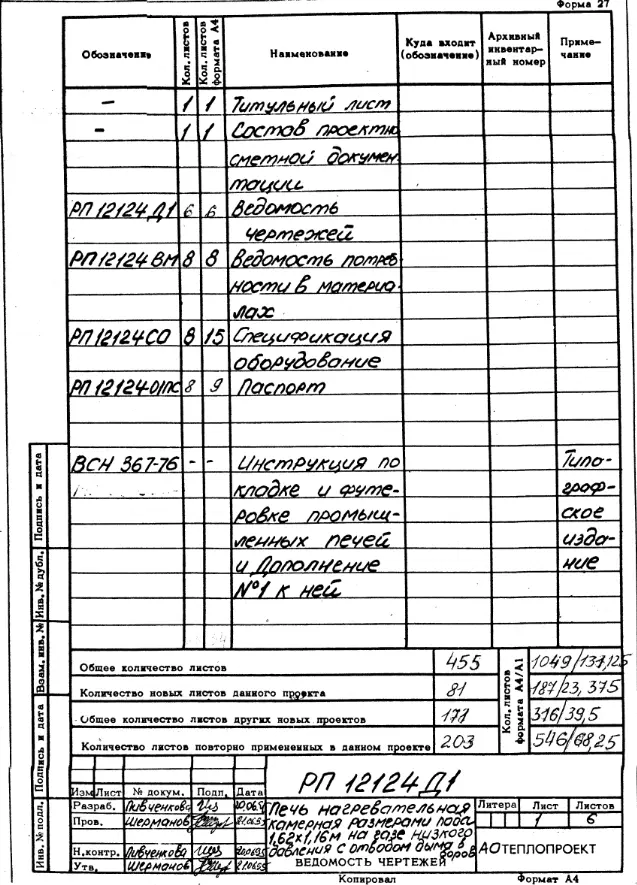 Форма 27
Обозначение
Кол. листов
Кол. листов формата А4
Наименование
Куда входит (обозначение)
Архивный инвентарный номер
Примечание
– 1 1 Титульный лист
– 1 1 Состав проектно
сметной докумен
тации
РП 12124 Д1 6 6 Ведомость
чертежей
РП 12124 ВМ 8 8 Ведомость потреб
ности в материа-
лах
РП 12124 СО 8 15 Спецификация
оборудование
РП 12124-01ПС 8 9 Паспорт
ВСН 367-76 - - Инструкция по Типо-
кладке и футе- граф-
ровке промыш- ское
ленных печей изда-
и Дополнение ние
№1 к ней
Общее количество листов 455 1049/131,125
Количество новых листов данного проекта 81 187/23,375
Общее количество листов других новых проектов 316/39,5
Количество листов повторно примененных в данном проекте 203 546/68,25
Кол. листов формата А4/А1
Подпись и дата
Инв. № дубл.
Взам. инв. №
Подпись и дата
Инв. № подл.
РП 12124 Д1
Изм Лист № докум. Подп. Дата
Разраб. Пивченкова
Пров. Шерманов
Н.контр. Пивченкова
Утв. Шерманов
Печь нагревательная
камерная размерами пода
1,62х1,16м на газе низкого
давления с отводом дыма в боров
ВЕДОМОСТЬ ЧЕРТЕЖЕЙ
Литера Лист Листов
1 6
АОТЕПЛОПРОЕКТ
Копировал Формат А4